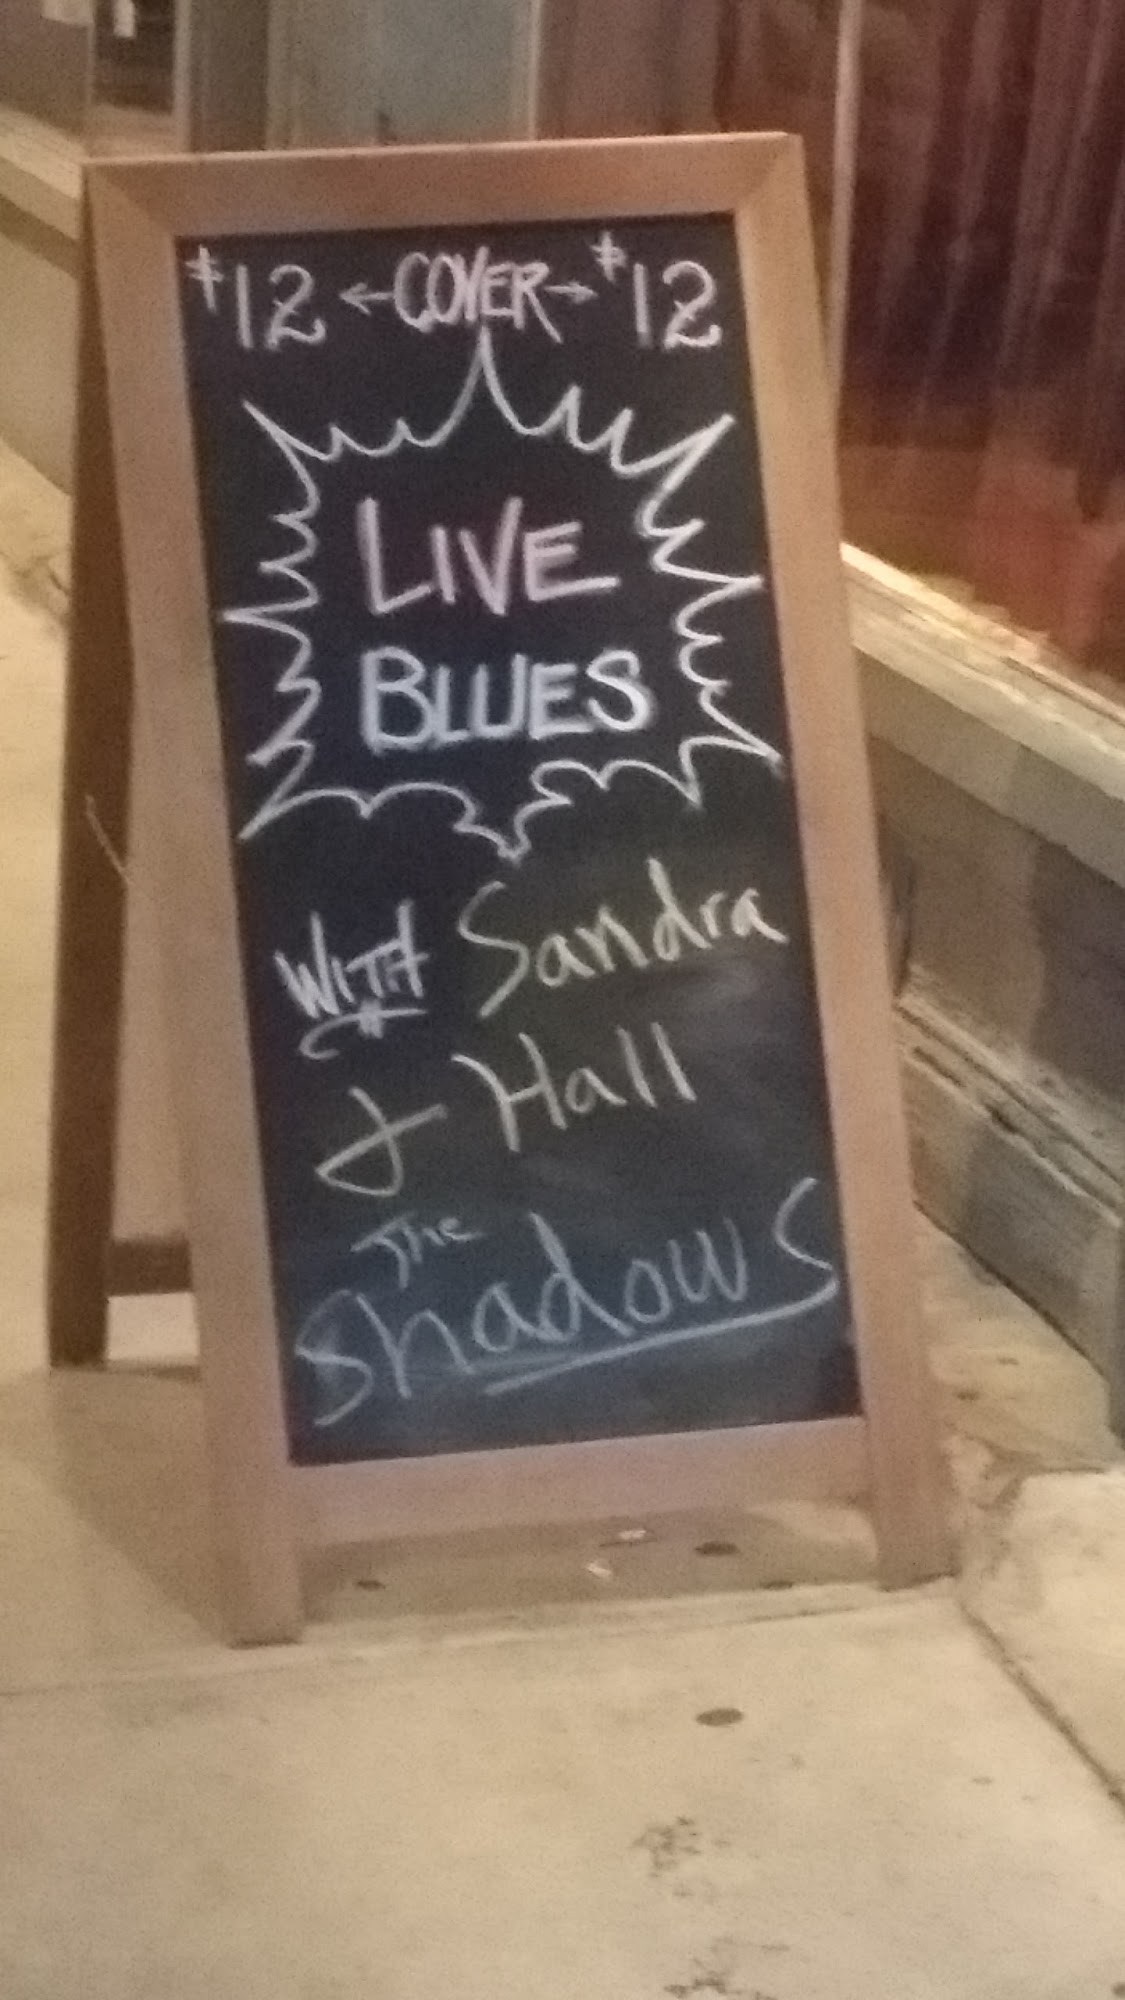 $12 ←COVER→ $12
LIVE
BLUES
WITH Sandra
& Hall
The
Shadows